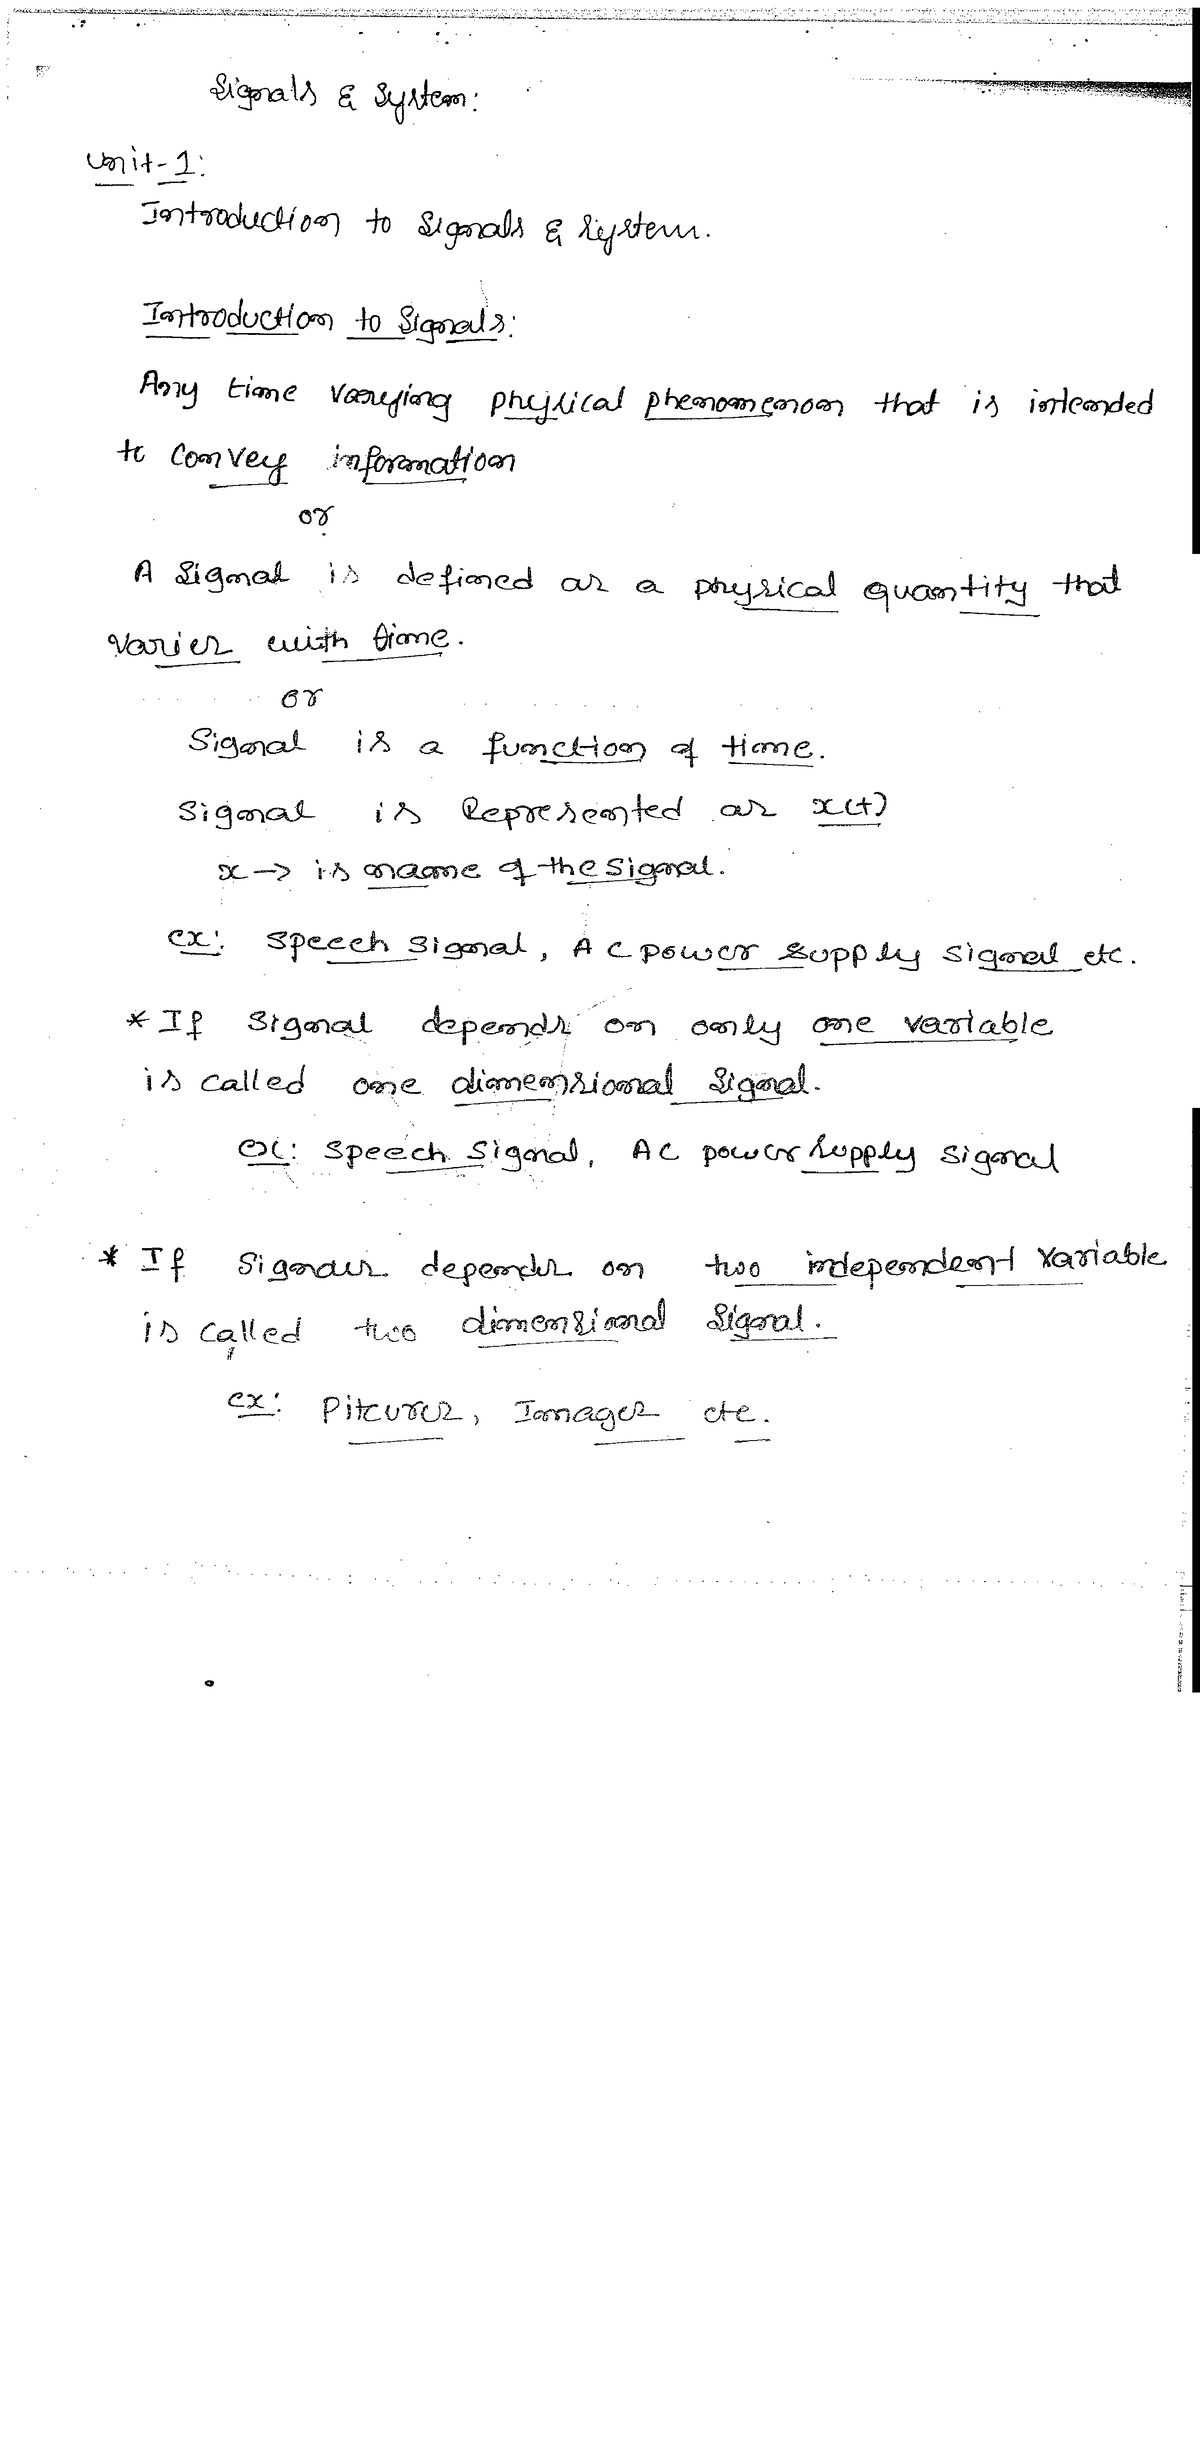 Signals & System:
Unit-1:
Introduction to Signals & System.
Introduction to Signals:
Any time varying physical phenomenon that is intended
to convey information
or
A Signal is defined as a physical quantity that
varies with time.
or
Signal is a function of time.
Signal is Represented as x(t)
x → is name of the Signal.
ex: Speech Signal, AC power supply Signal etc.
* If Signal depends on only one variable
is called one dimensional Signal.
ex: Speech Signal, AC power supply Signal
* If Signals depends on two independent variable
is called two dimensional Signal.
ex: Pitcures, Images etc.